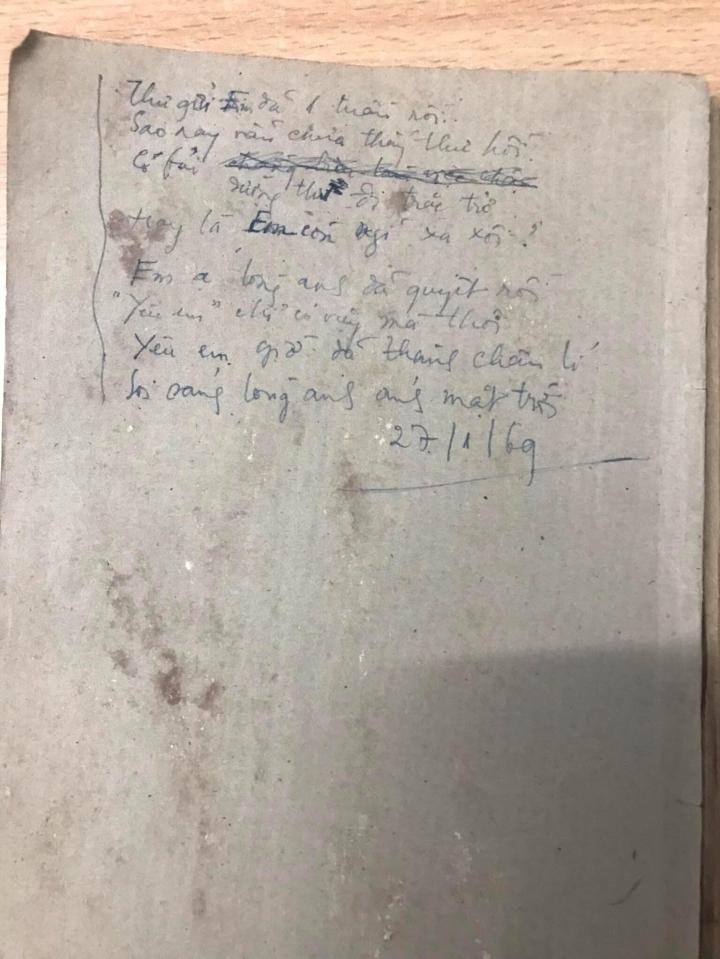 Thư gửi Em đã 1 tuần rồi..
Sao nay vẫn chưa thấy thư hồi.
Có fải
đường thư đi trắc trở
Hay là Em còn nghĩ xa xôi?
Em ạ lòng anh đã quyết rồi
"Yêu em" chỉ có vậy mà thôi
Yêu em giờ đã thành chân lí
Soi sáng lòng anh ánh mặt trời
27/1/69